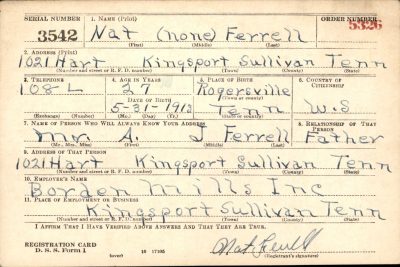 SERIAL NUMBER 1. NAME (Print) ORDER NUMBER
3542 Nat (none) Ferrell 5326
(First) (Middle) (Last)
2. ADDRESS (Print)
1021 Hart Kingsport Sullivan Tenn
(Number and street or R. F. D. number) (Town) (County) (State)
3. TELEPHONE 4. AGE IN YEARS 5. PLACE OF BIRTH 6. COUNTRY OF CITIZENSHIP
108-L 27 Rogersville
DATE OF BIRTH (Town or county)
5-31-1913 Tenn U.S
(Exchange) (Number) (Mo.) (Day) (Yr.) (State or country)
7. NAME OF PERSON WHO WILL ALWAYS KNOW YOUR ADDRESS 8. RELATIONSHIP OF THAT PERSON
Mr. A. J Ferrell Father
(Mr., Mrs., Miss) (First) (Middle) (Last)
9. ADDRESS OF THAT PERSON
1021 Hart Kingsport Sullivan Tenn
(Number and street or R. F. D. number) (Town) (County) (State)
10. EMPLOYER'S NAME
Borden Mills Inc
11. PLACE OF EMPLOYMENT OR BUSINESS
Kingsport Sullivan Tenn
(Number and street or R. F. D. number) (Town) (County) (State)
I AFFIRM THAT I HAVE VERIFIED ABOVE ANSWERS AND THAT THEY ARE TRUE.
REGISTRATION CARD
D. S. S. Form 1 (over) 16 17105 Nat Ferrell
(Registrant's signature)